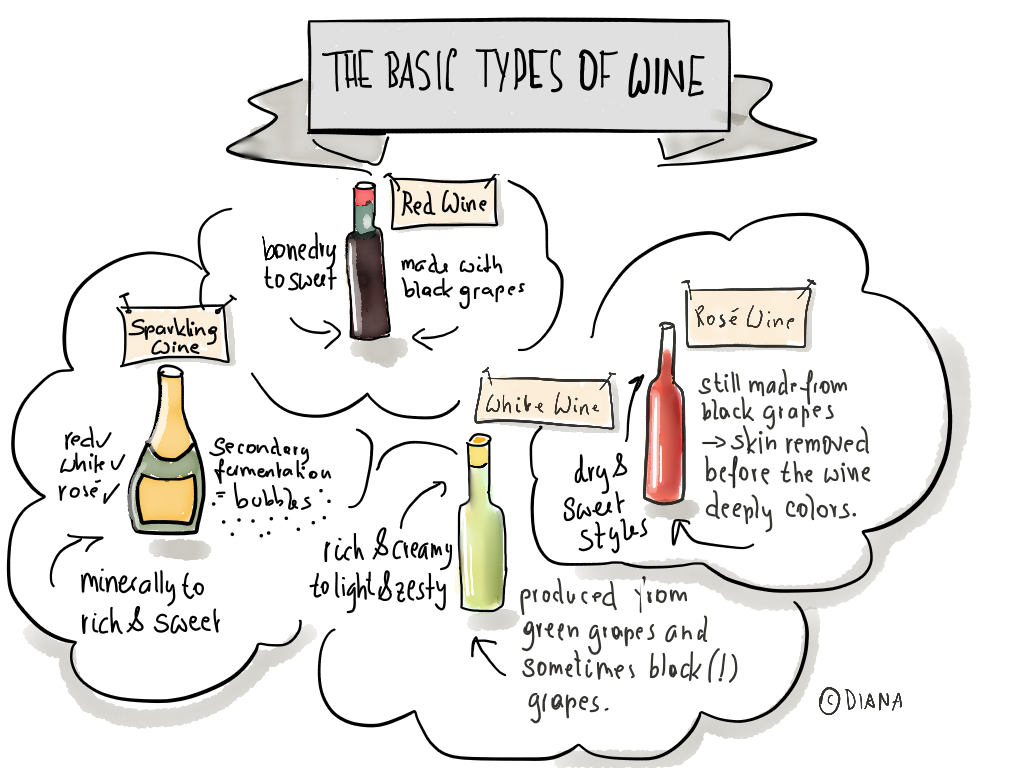 THE BASIC TYPES OF WINE
Red Wine
bonedry
to sweet
made with
black grapes
Sparkling
wine
red✓
white✓
rosé✓
Secondary
fermentation
= bubbles
minerally to
rich & sweet
White Wine
rich & creamy
to light & zesty
produced from
green grapes and
sometimes black (!)
grapes.
Rosé Wine
dry &
sweet
styles
still made from
black grapes
→ skin removed
before the wine
deeply colors.
© DIANA